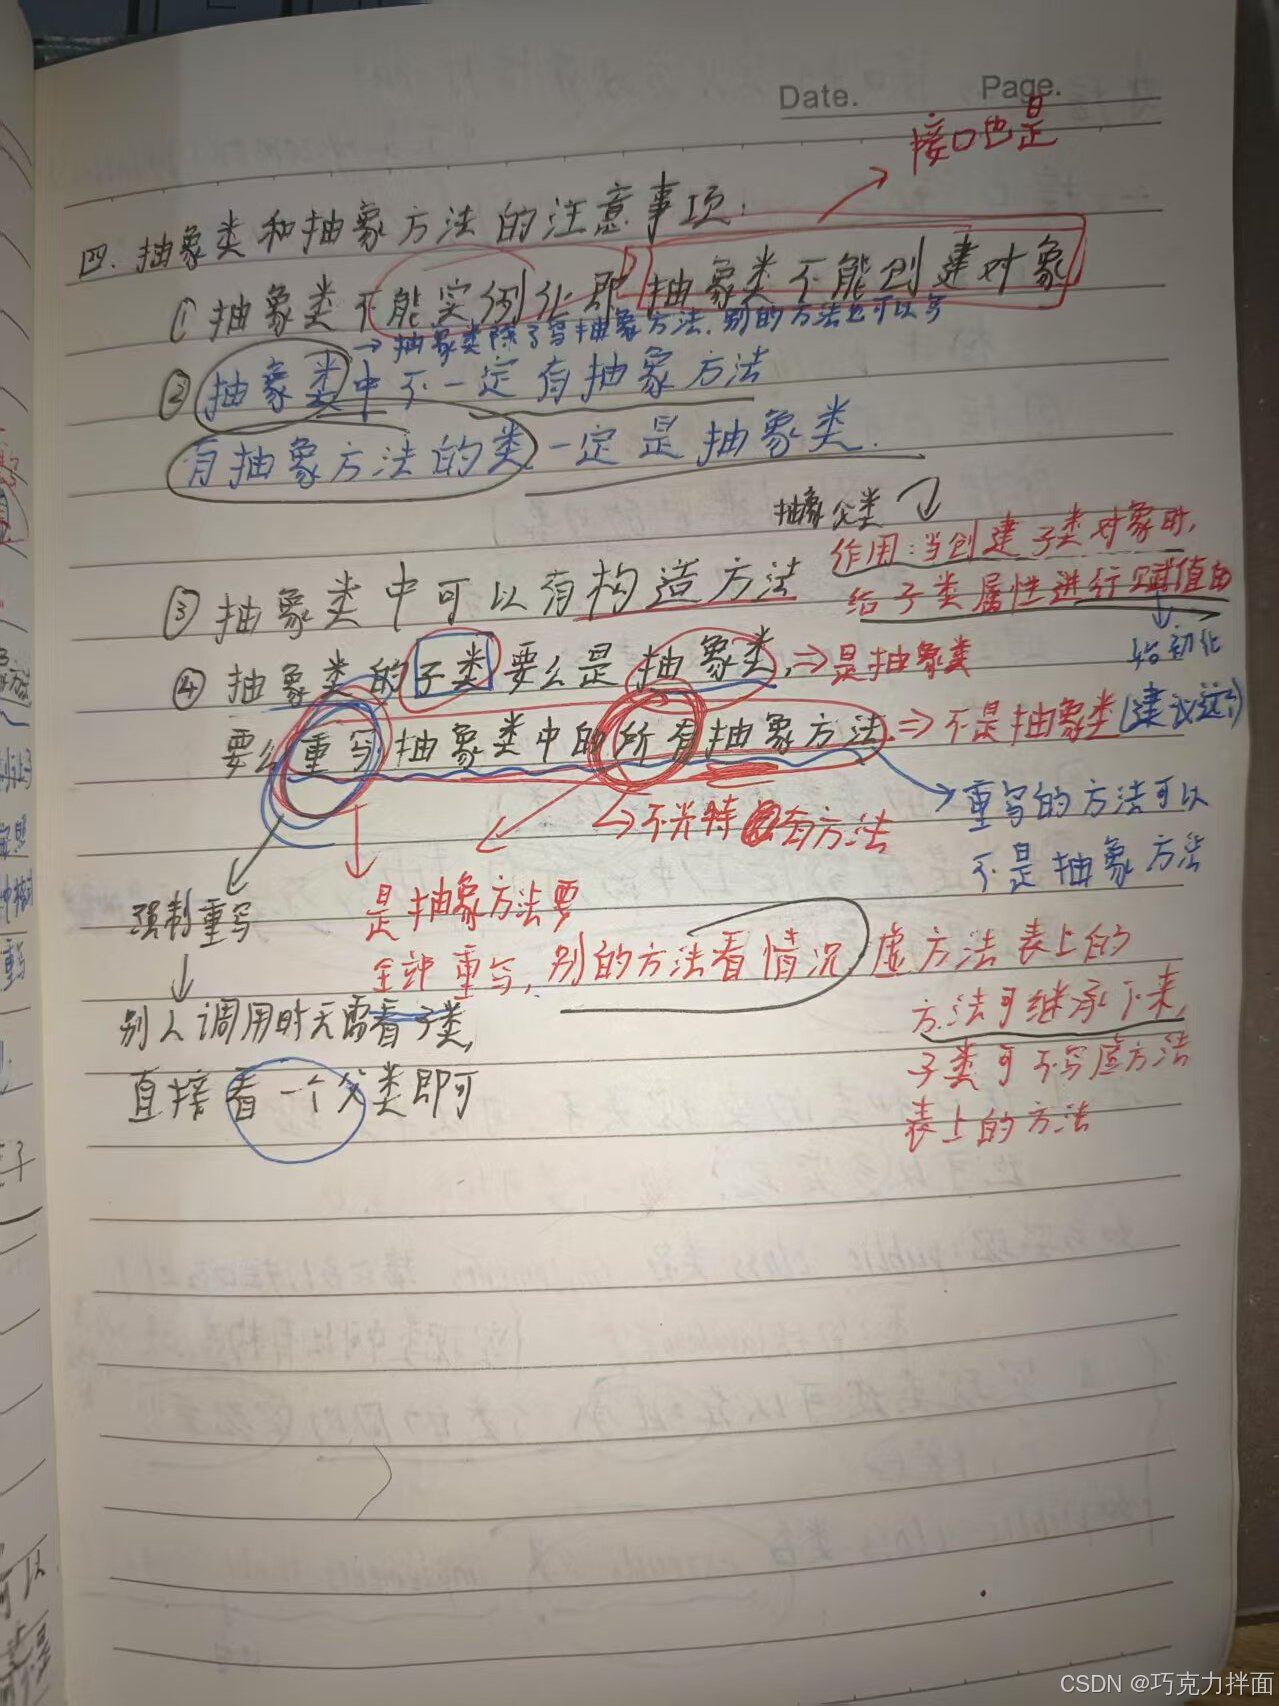 Date.
Page.
接口也是
四. 抽象类和抽象方法的注意事项:
① 抽象类不能实例化即 抽象类不能创建对象
→ 抽象类除了写抽象方法. 别的方法也可以写
② 抽象类中不一定有抽象方法
有抽象方法的类一定是抽象类.
抽象父类
作用:当创建子类对象时,
③ 抽象类中可以有构造方法
给子类属性进行赋值的
始初化
④ 抽象类的子类要么是抽象类,⇒是抽象类
要么重写抽象类中的所有抽象方法.⇒不是抽象类(建议这个)
→不光特有方法
重写的方法可以
不是抽象方法
强制重写
是抽象方法要
全部重写,别的方法看情况
虚方法表上的
方法可继承下来,
子类可不写虚方法
表上的方法
别人调用时无需看子类,
直接看一个父类即可
CSDN @巧克力拌面